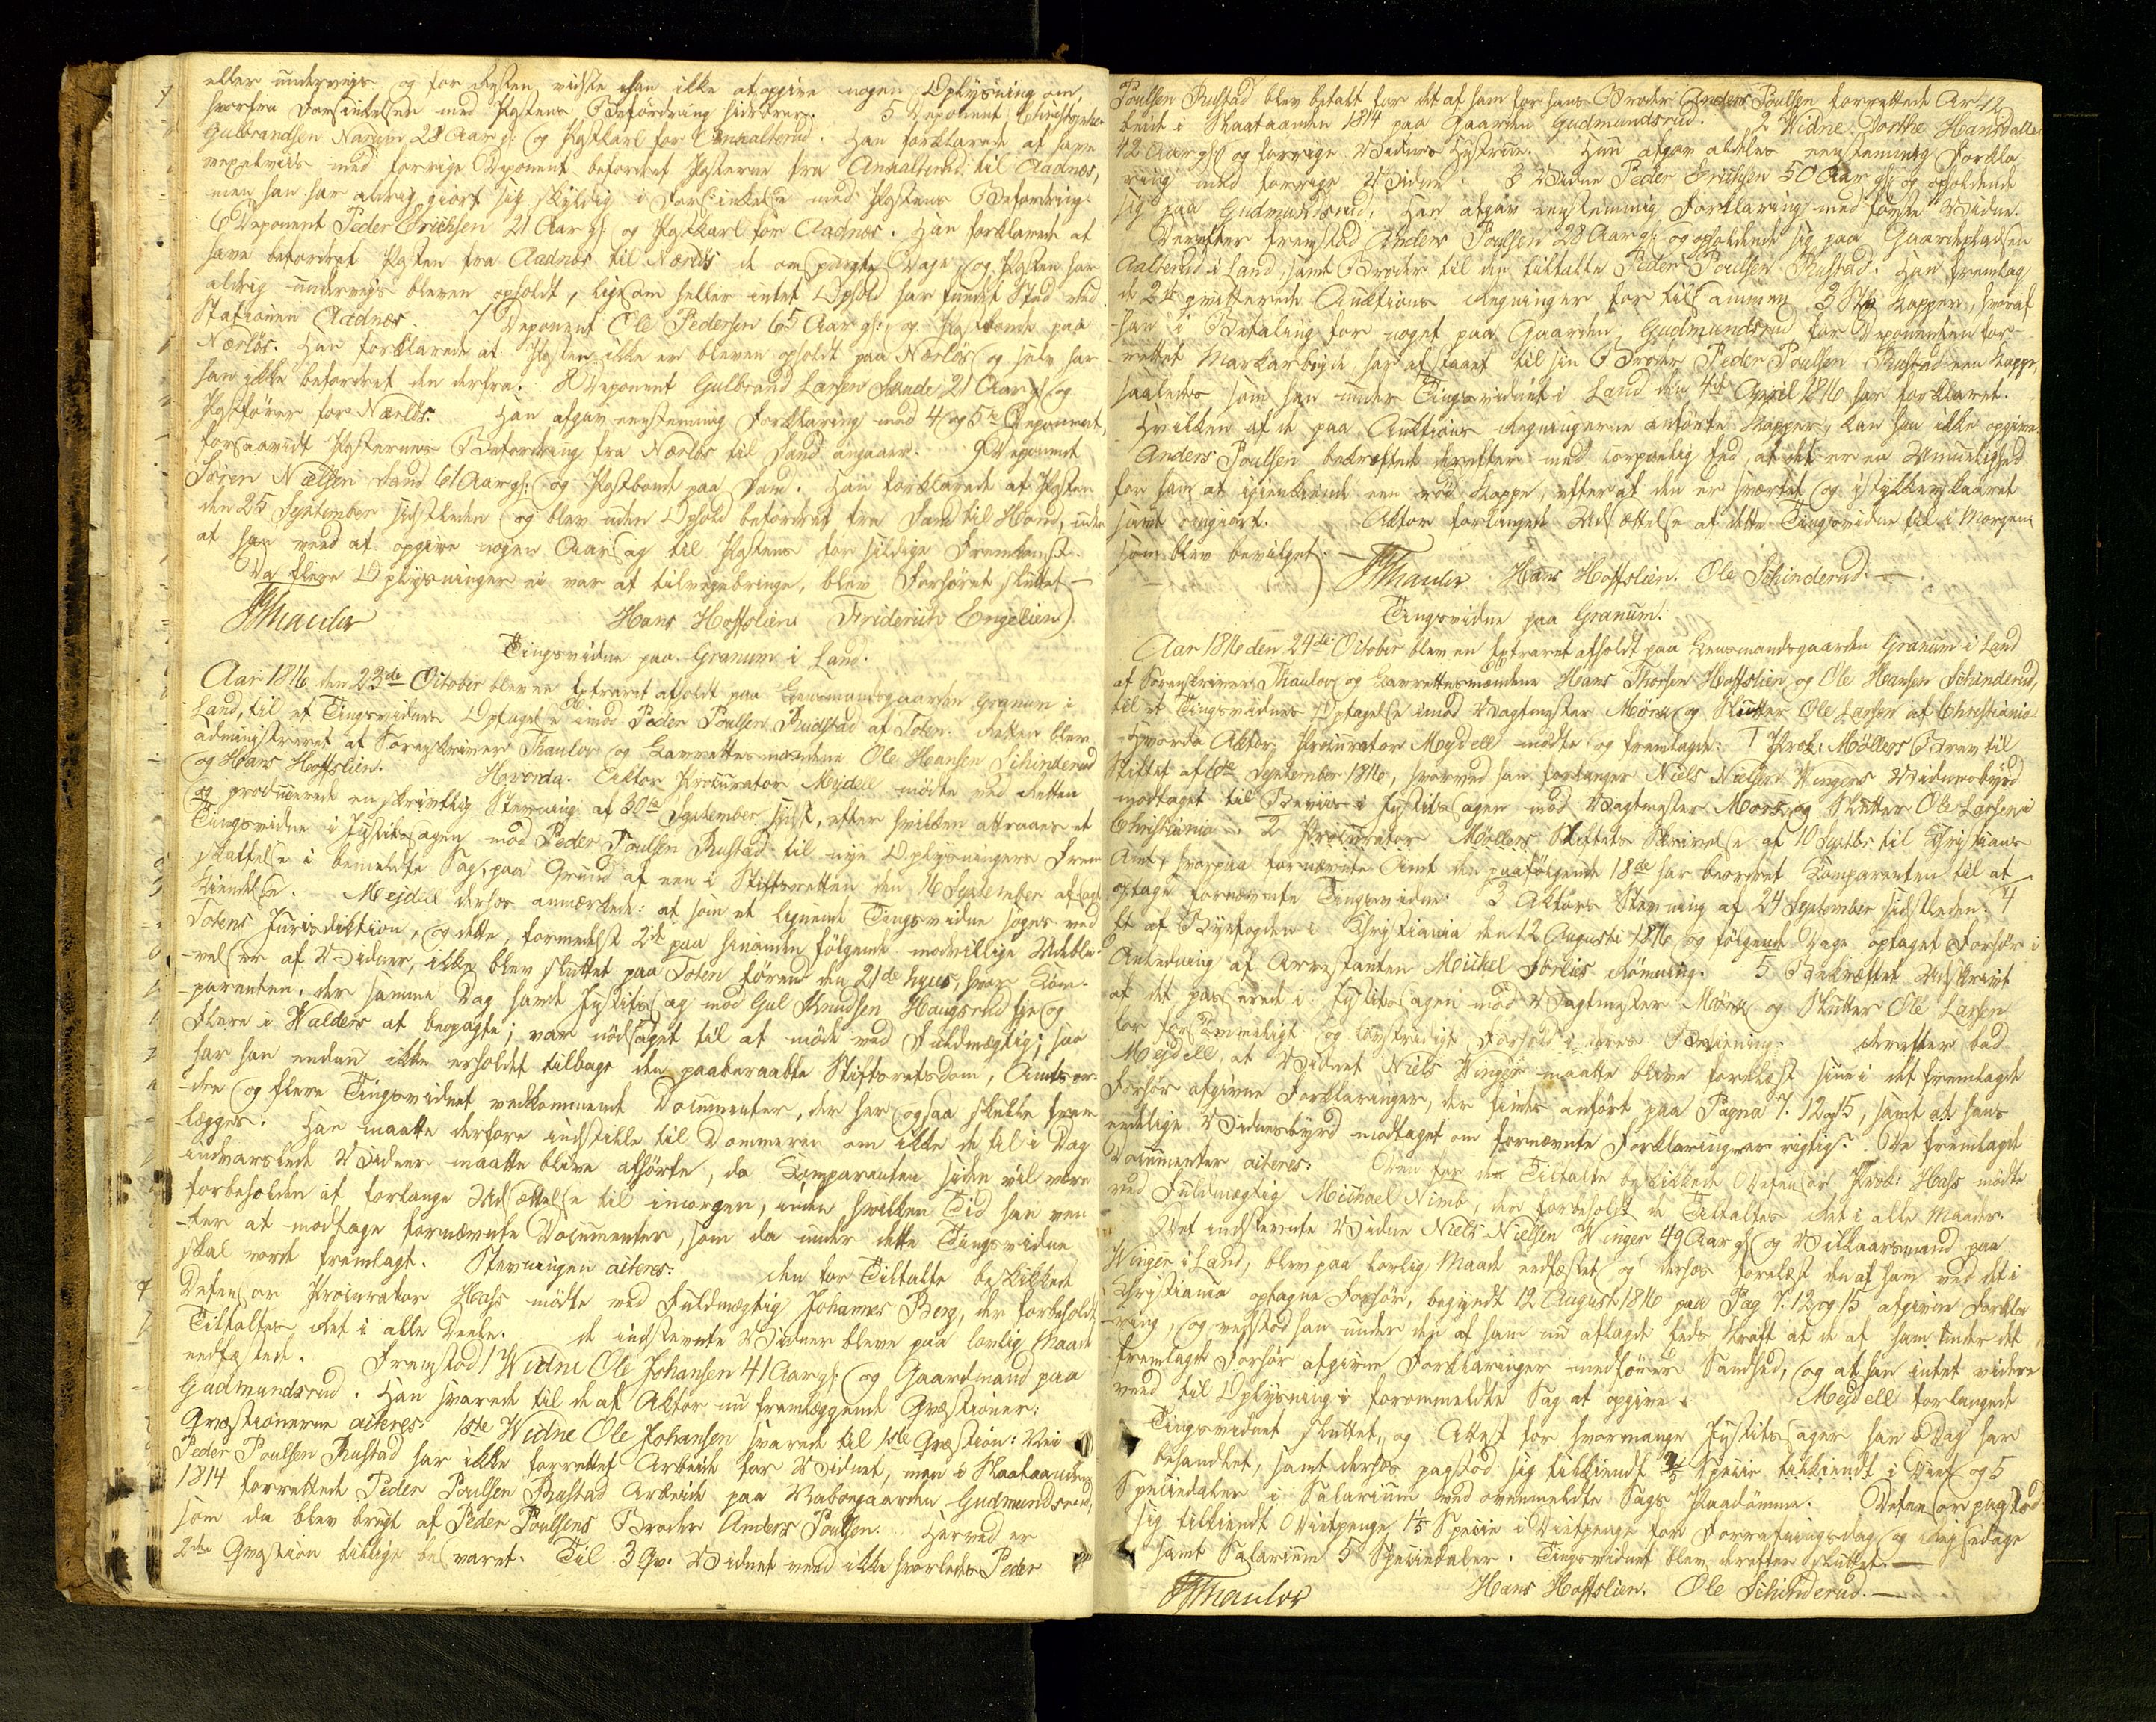 eller underveis og for Resten vidste han ikke at opgive nogen Oplysning om,
hvorfra Forsinkelsen med Postens Befordring hidrører. 5 Deponent Christopher
Gulbrandsen Narum 28 Aar gl: og Postkarl for Annalterud. Han forklarede at have
vexelviis med forrige Deponent befordret Posterne fra Annalterud til Aadnes,
men han har aldrig giort sig skyldig i Forsinkelse med Postens Befordring.
6 Deponent Peder Erichsen 21 Aar gl: og Postkarl for Aadnes. Han forklarede at
have befordret Posten fra Aadnes til Nærlös de omspurgte Dage, og Posten har
aldrig underveis bleven opholdt, ligesom heller intet Ophold har fundet Sted ved
Stationen Aadnes. 7 Deponent Ole Pedersen 65 Aar gl: og Postbonde paa
Nærlös. Han forklarede at Posten ikke er bleven opholdt paa Nærlös og selv har
han ikke befordret den derfra. 8 Deponent Gulbrand Larsen 21 Aar gl og
Postfører for Nærlös. Han afgav eenstemmig Forklaring med 4 og 5te Deponent,
forsaavidt Posternes Befordring fra Nærlös til Sand angaaer. 9 Deponent
Sören Nielsen Sand 61 Aar gl: og Postbonde paa Sand. Han forklarede at Posten
den 25 September sidstleden og blev uden Ophold befordret fra Sand til Hond, uden
at han veed at opgive nogen Aarsag til Postens for sildige Fremkomst.
Da flere Oplysninger ei var at tilveiebringe, blev Forhöret sluttet —
Thaulow Hans Hoffslien Friderich Engelien
Tingsvidne paa Granum i Land.
Aar 1816 den 23de October blev en Extraret afholdt paa Lensmandsgaarden Granum i
Land, til et Tingsvidnes Optagelse imod Peder Poulsen Rudstad af Toten. Retten blev
administreret af Sorenskriver Thaulow og Laurettesmændene Ole Hansen Schinderud
og Hans Hoffslien. Hvorda Aktor Procurator Mejdell mödte ved Retten
og producerede en skriftlig Stevning af 30te September sidst, efter hvilken attraaes et
Tingsvidne i Justitssagen mod Peder Poulsen Rustad til nye Oplysningers Frem
skaffelse i bemeldte Sag, paa Grund af een i Stiftsretten den 16 September afsagt
Kiendelse. Mejdell derhos anmærkede: at som et lignende Tingsvidne søges ved
Totens Jurisdiktion, og dette, formedelst 2de paa hinanden følgende modvillige Udebli
velser af Vidner, ikke blev sluttet paa Toten førend den 21de hujus, hvor Kom-
parenten, der samme Dag havde Justitssag mod Gul Knudsen Haugsrud og
Flere i Walders at beopagte; var nödsaget til at möde ved Fuldmægtig; saa
har han endnu ikke erholdt tilbage den paaberaabte Stiftsretsdom, Amtsor-
dre og flere Tingsvidnet vedkommende Documenter, der her ogsaa skulle frem
lægges. Han maatte derfore indstille til Dommeren om ikke de til i Dag
indvarslede Vidner maatte blive afhörte, da Komparenten siden vil være
forbeholden at forlange Udsættelse til imorgen, inden hvilken Tid han ven
ter at modtage fornævnte Documenter, som da under dette Tingsvidne
skal vorde fremlagt. Stevningen aiteres: Den for Tiltalte beskikkede
Defensor Procurator Hass mödte ved Fuldmægtig Johannes Berg, der forbeholdt
Tiltalte Ret i alle Deele. De indstevnte Vidner bleve paa lovlig Maade
eedfæstede. Fremstod 1 Widne Ole Johansen 41 Aar gl: og Gaardmand paa
Gudmundsrud. Han svarede til de af Aktor nu fremlæggende Qvæstioner:
Qvæstionerne aiteres: 1ste Widne Ole Johansen svarede til 1ste Qvæstion: Nei
Peder Poulsen Rustad har ikke forrettet Arbeide for Vidnet, men i Skaataanden
1814 forrettede Peder Poulsen Rustad Arbeide paa Nabogaarden Gudmundsrud,
som da blev brugt af Peder Poulsens Broder Anders Poulsen. Herved er
2den Qvæstion tillige besvaret. Til 3 Qv. Vidnet veed ikke hvorledes Peder
Poulsen Rustad blev betalt for det af ham for hans Broder Anders Poulsen forrettede Ar 42
beide i Skaataanden 1814 paa Gaarden Gudmundsrud. 2 Widne Dorthe Hansdatter
42 Aar gl: og forrige Vidnes Hustrue. Hun afgav aldeles eenstemmig Forkla-
ring med forrige Vidne. 3 Vidne Peder Erichsen 50 Aar gl: og opholdende
sig paa Gudmundsrud. Han afgav eenstemmig Forklaring med første Vidne.
Derefter fremstod Anders Poulsen 28 Aar gl: og opholdende sig paa Gaardepladsen
Aalterud i Land, samt Broder til den tiltalte Peder Poulsen Rustad. Han fremlag
de 2de qvitterede Auktions Regninger for tilsammen 3 Stk Kapper, hvoraf
han i Betaling for noget paa Gaarden Gudmundsrud for Deponenten for-
rettet Markarbeyde har afstaaet til sin Broder Peder Poulsen Rustad een Kappe,
saaledes som han under Tingsvidnet i Land den 4de April 1816 har forklaret.
Hvilken af de paa Auktions Regningerne anförte Kapper, kan han ikke opgive.
Anders Poulsen bekræftede derefter med corporlig Eed, at det er en Umuelighed
for ham at igienkiende een röd Kappe, efter at den er sværtet og istykkerskaaret
samt omgiort. Aktor forlangede Udsættelse af dette Tingsvidne til i Morgen
som blev bevilget.
Thaulow Hans Hoffslien. Ole Schinderud. —
Tingsvidne paa Granum.
Aar 1816 den 24de October blev en Extraret afholdt paa Lensmandsgaarden Granum i Land
af Sorenskriver Thaulow og Laurettesmændene Hans Thorsen Hoffslien og Ole Hansen Schinderud,
til et Tingsvidnes Optagelse imod Vagtmester Mörck og Slutter Ole Larsen af Christiania.
Hvorda Aktor Procurator Mejdell mödte og fremlagde: 1 Prok: Møllers Brev til
Stiftet af 6te September 1816, hvorved han forlanger Niels Nielsen Wingers Vidnesbyrd
modtaget til Beviis i Justitssagen mod Vagtmester Mörck og Slutter Ole Larsen i
Christiania. 2 Procurator Møllers Stiftets Skrivelse af 10 Septbr til Christians
Amt, hvorpaa fornævnte Amt den paafølgende 18de har beordret Komparenten til at
optage fornævnte Tingsvidne. 3 Aktors Stevning af 24 September sidstleden. 4
Et af Byefogden i Christiania den 12 Augusti 1816 og følgende Dage optaget Forhör i
Anledning af Arrestanten Michel Römning. 5 Bekræftet Udskrivt
af det passerede i Justitssagen mod Vagtmester Mörck og Slutter Ole Larsen
for forsömmeligt og lovstridigt Forhold i deres Betiening. Derefter bad
Mejdell, at Vidnet Niels Winger maatte blive forelæst hine i det fremlagde
Forhör afgivne Forklaringer, der findes anfört paa Pagna 7. 12 og 15, samt at hans
eedelige Vidnesbyrd modtaget om fornævnte Forklaringer er rigtig. De fremlagde
Documenter aiteres: Den for de Tiltalte beskikkede Defensor Prok: Hass mödte
ved Fuldmægtig Michael Nimb, der forbeholdt de Tiltaltes Ret i alle Maader.
Det indstevnte Vidne Niels Nielsen Winger 49 Aar gl: og Vilkaarsmand paa
Winger i Land, blev paa lovlig Maade eedfæstet og derhos forelæst den af ham ved det i
Christiania optagne Forhör, begyndt 12 August 1816 paa Pag 7. 12 og 15 afgivne Forkla
ring, og vedstod han under den af ham nu aflagde Eeds Kraft at de af ham under det
fremlagde Forhör afgivne Forklaringer medförer Sandhed, og at han intet videre
veed til Oplysning i forommeldte Sag at opgive. Mejdell forlangede
Tingsvidnet sluttet, og Attest for hvormange Justitssager han i Dag har
behandlet, samt derhos paastod sig tilkiendt Specie tilkiendt i Diæt og 5
Speciedaler i Salarium ved ovenmeldte Sags Paadömme. Defensor paastod
sig tilkiendt Diætpenge 1⅕ Specie i Diætpenge for Forretningsdag og Reisedage
samt Salarium 5 Speciedaler. Tingsvidnet blev derefter sluttet. —
Thaulow Hans Hoffslien. Ole Schinderud. —